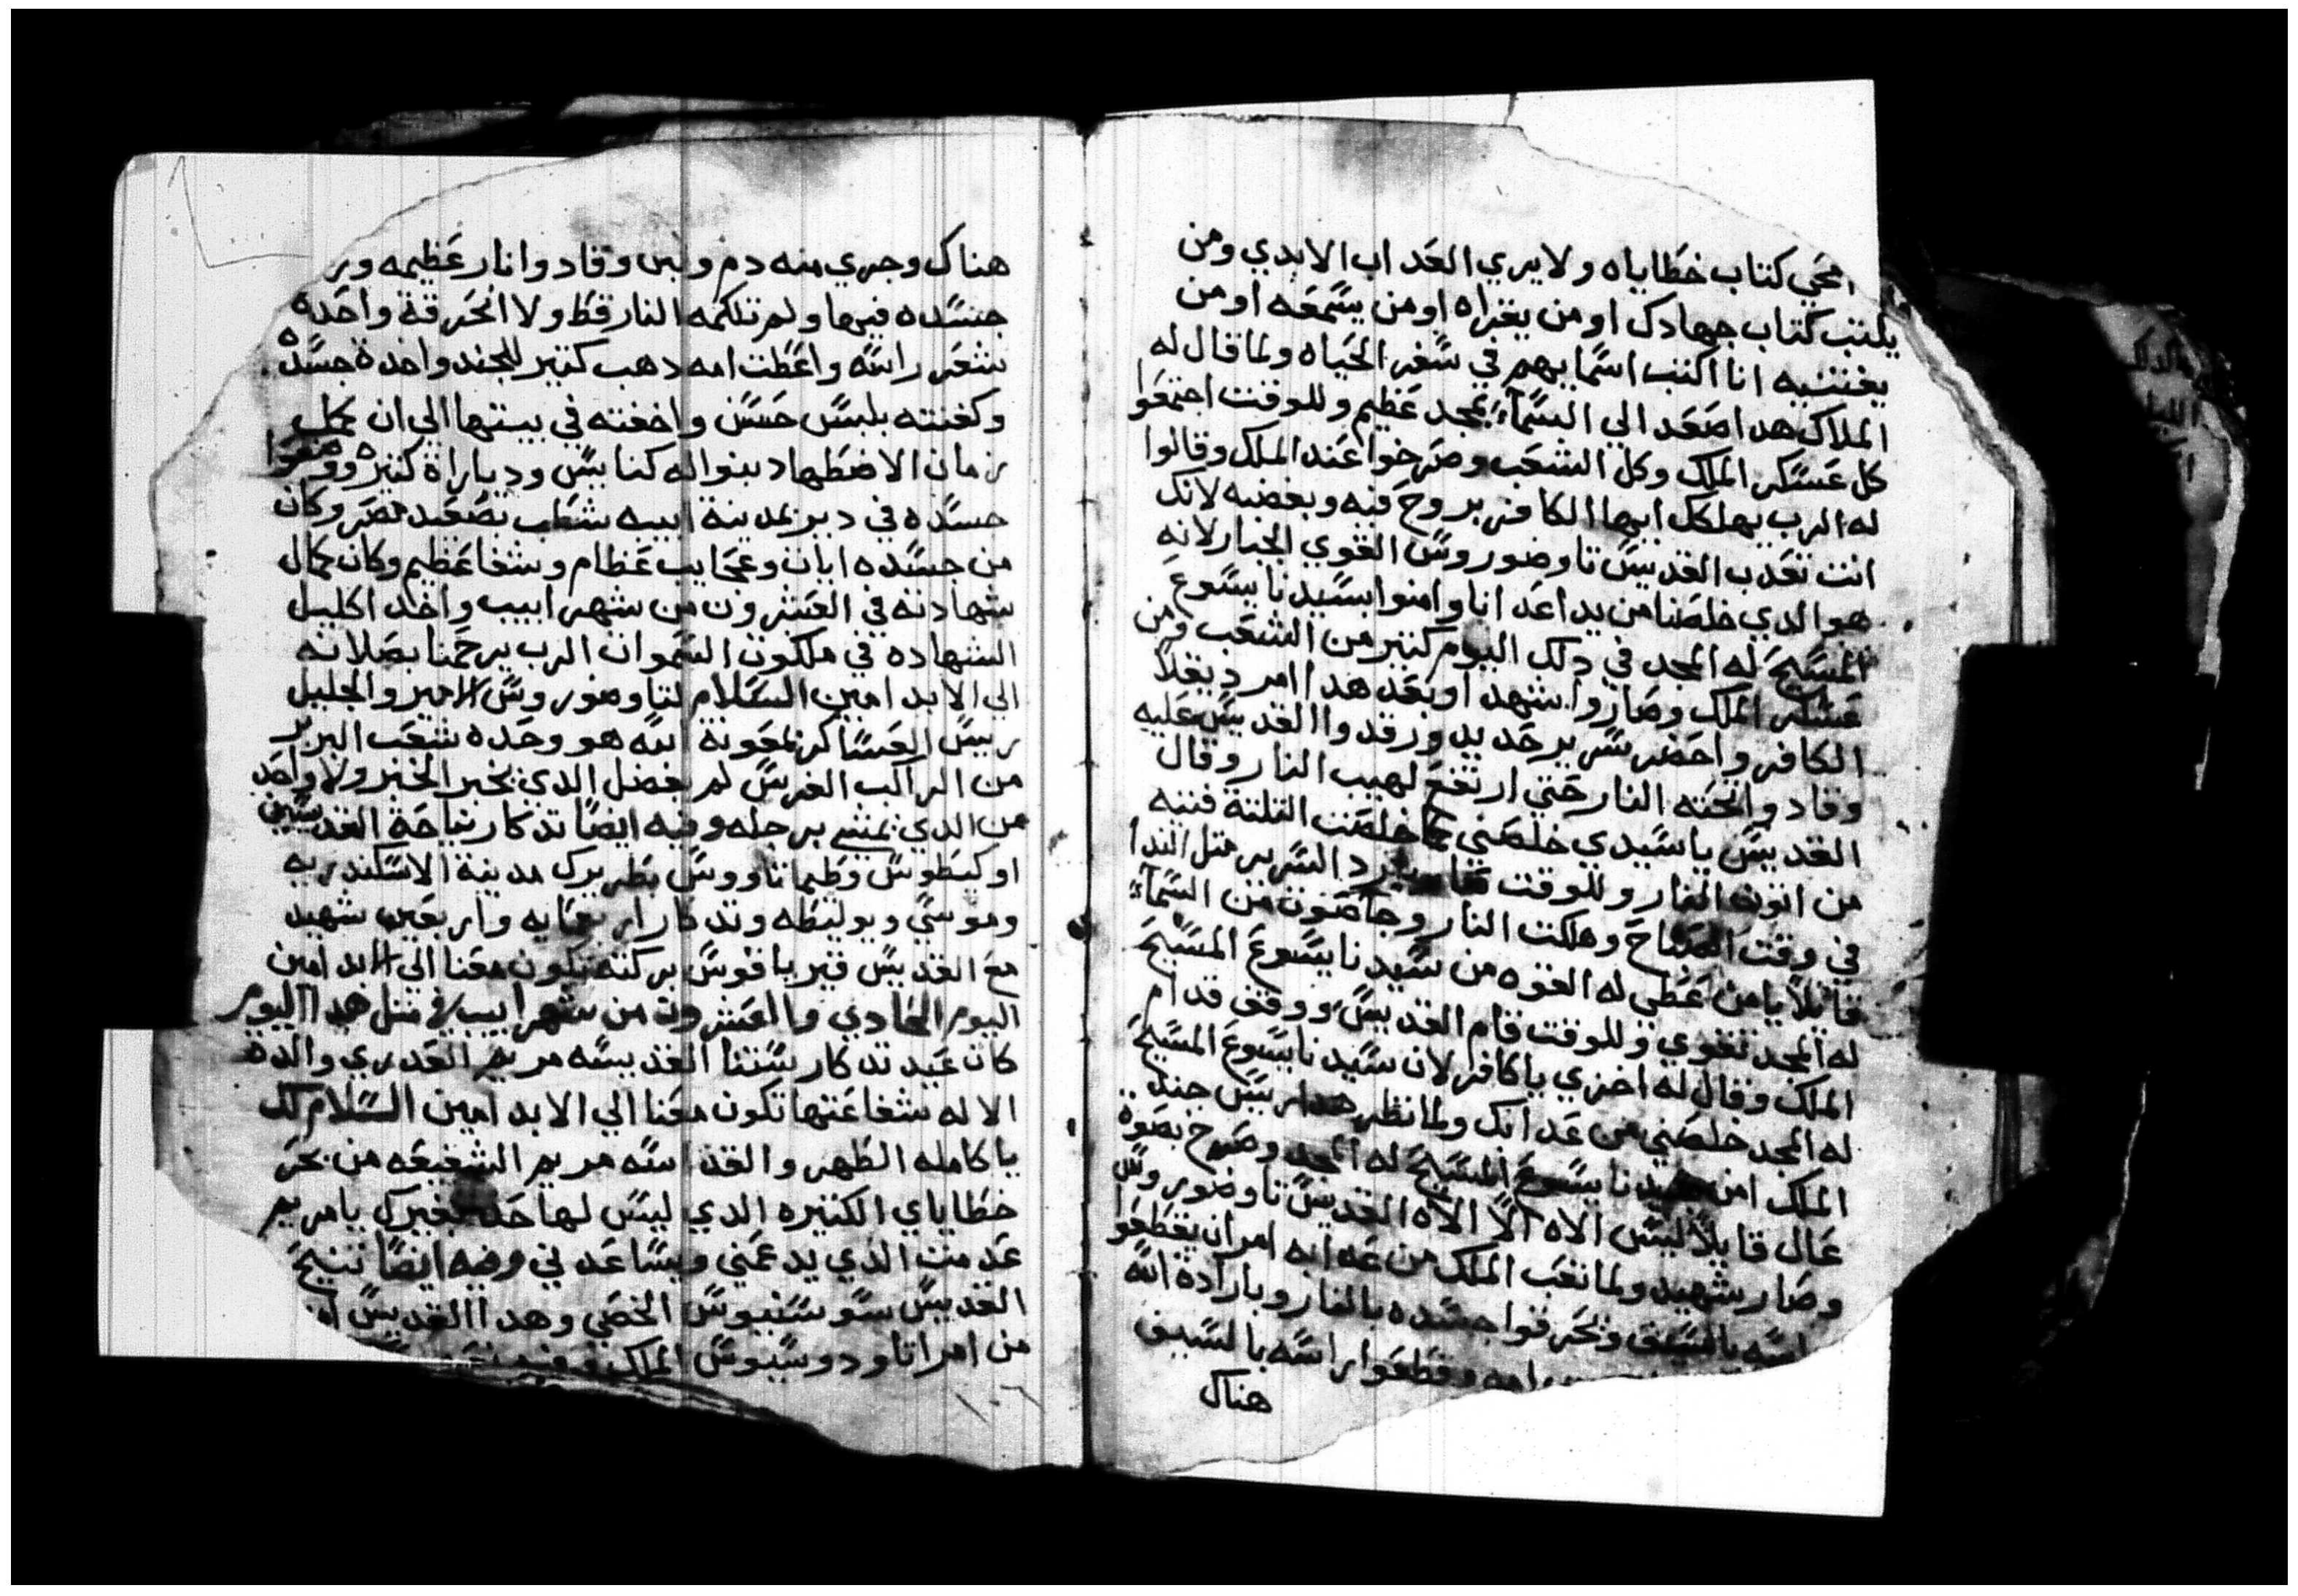 امحي كتاب خطاياه ولا يري العداب الابدي ومن
يكتب كتاب جهادك او من يقراه او من يسمعه او من
يقتنيه انا اكتب اسمايهم في سفر الحياه ولما قال له
الملاك هدا صعد الي السمآء بمجد عظيم وللوقت اجتمعوا
كل عسكر الملك وكل الشعب وصرخوا عند الملك وقالوا
له الرب يهلكك ايها الكافر بروح فيه وبغضبه لانك
انت تعدب القديس تاوضوروس القوي الجبار لانه
هو الدي خلصنا من يد اعدانا وامنوا بسيدنا يسوع
المسيح له المجد في دلك اليوم كتير من الشعب ومن
عسكر الملك وصاروا شهدا وبعد هدا امر ديقلا
الكافر واحضر سرير حديد ورقدوا القديس عليه
وقادوا تحته النار حتي ارتفع لهيب النار وقال
القديس يا سيدي خلصني كما خلصت التلتة فتيه
من اتون النار وللوقت برد السرير متل الندا
في وقت الصباح وهلكت النار وجا صوت من السمآء
قايلاً يا من عطي له القوه من سيدنا يسوع المسيح
له المجد تقوي وللوقت قام القديس ووقف قدام
الملك وقال له اخزي يا كافر لان سيدنا يسوع المسيح
له المجد خلصني من عدابك ولما نظر هدا ريس جند
الملك امن بسيدنا يسوع المسيح له المجد وصرخ بصوة
عال قايلاً ليس الاه الاّ الاه القديس تاوضوروس
وصار شهيد ولما تعب الملك من عدابه امر ان يقطعوا
راسه بالسيف وتحرقوا جسده بالنار وبارادة الله
امه وقطعوا راسه بالسيف
هناك
هناك وجري منه دم ولبن وقادوا نار عظيمه
جسده فيها ولم تلكمه النار قط ولا انحرقة واحده
شعر راسه واعطت امه دهب كتير للجند واخدة جسده
وكفنته بلبس حسن واخفته في بيتها الي ان كمل
زمان الاضطهاد بنوا له كنايس وديارة كتيره ووضعوا
جسده في دير بمدينة ابيه شطب بصعيد مصر وكان
من جسده ايات وعجايب عظام وشفا عظيم وكان كمال
شهادته في العشرون من شهر ابيب واخد اكليل
الشهاده في ملكوت السموات الرب يرحمنا بصلاته
الي الابد امين السلام لتاوضوروس الامير والجليل
ريس العساكر بمعونة الله هو وحده شعب البربر
من الراكب الفرس لم يفضل الدي يخبر الخبر ولا واحد
من الدي يمشي برجله وفيه ايضاً تدكار نياحة القديسين
اوكيطوس وطيماتاووس بطريرك مدينة الاسكندريه
وموسي ويوليطه وتدكار اربعمايه واربعين شهيد
مع القديس قيرياقوس بركته تكون معنا الي الابد امين
اليوم الحادي والعشرون من شهر ابيب في متل هدا اليوم
كان عيد تدكار ستنا القديسه مريم العدري والدة
الاله شفاعتها تكون معنا الي الابد امين السلام لك
يا كامله الطهر والقداسه مريم الشفيعه من بحر
خطاياي الكتيره الدي ليس لها حد بغيرك يا مريم
عدمت الدي يدعمني ويساعدني وفيه ايضاً تنيح
القديس سوسنيوس الخصي وهدا القديس
من امرا تاودوسيوس الملك